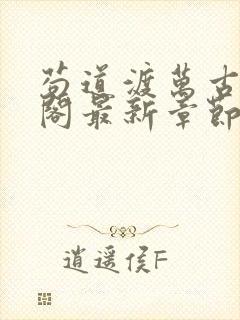 苟道渡萬古
閣最新章節
逍遥侯F